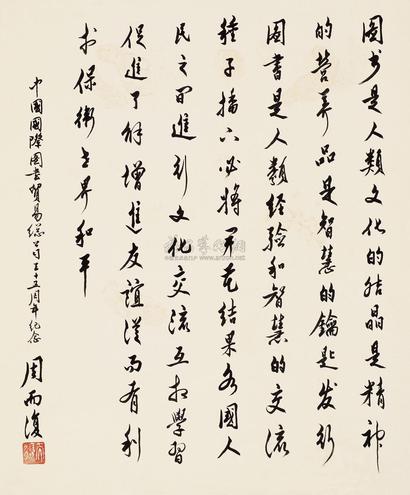 图书是人類文化的结晶是精神
的营养品是智慧的鑰匙发行
图書是人類经验和智慧的交流
種子播下必將开花结果各國人
民之间進行文化交流互相學習
促進了解增進友誼從而有利
於保衛世界和平
中國國際图書貿易總公司三十五周年纪念
周而復